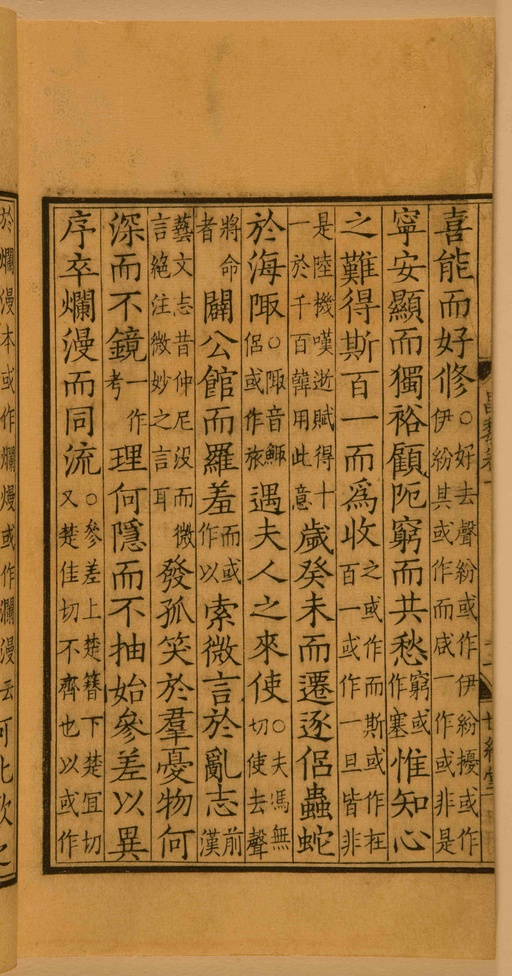 喜能而好修○好去聲紛或作伊紛擾或作伊紛其或作而咸一作或非是
寧安顯而獨裕顧阨窮而共愁窮或作塞惟知心
之難得斯百一而爲收之或作而斯或作在百一或作一旦皆非
是陸機嘆逝賦得十一於千百韓用此意歲癸未而遷逐侶蟲蛇
於海陬○陬音鯫侶或作旅遇夫人之來使○夫馮無切使去聲
將命者闢公館而羅羞而或作以索微言於亂志前漢
藝文志昔仲尼没而微言絕注微妙之言耳發孤笑於羣憂物何
深而不鏡一作考理何隱而不抽始參差以異
序卒爛漫而同流○參差上楚簪下楚宜切又楚佳切不齊也以或作
於爛漫本或作爛熳或作瀾漫云